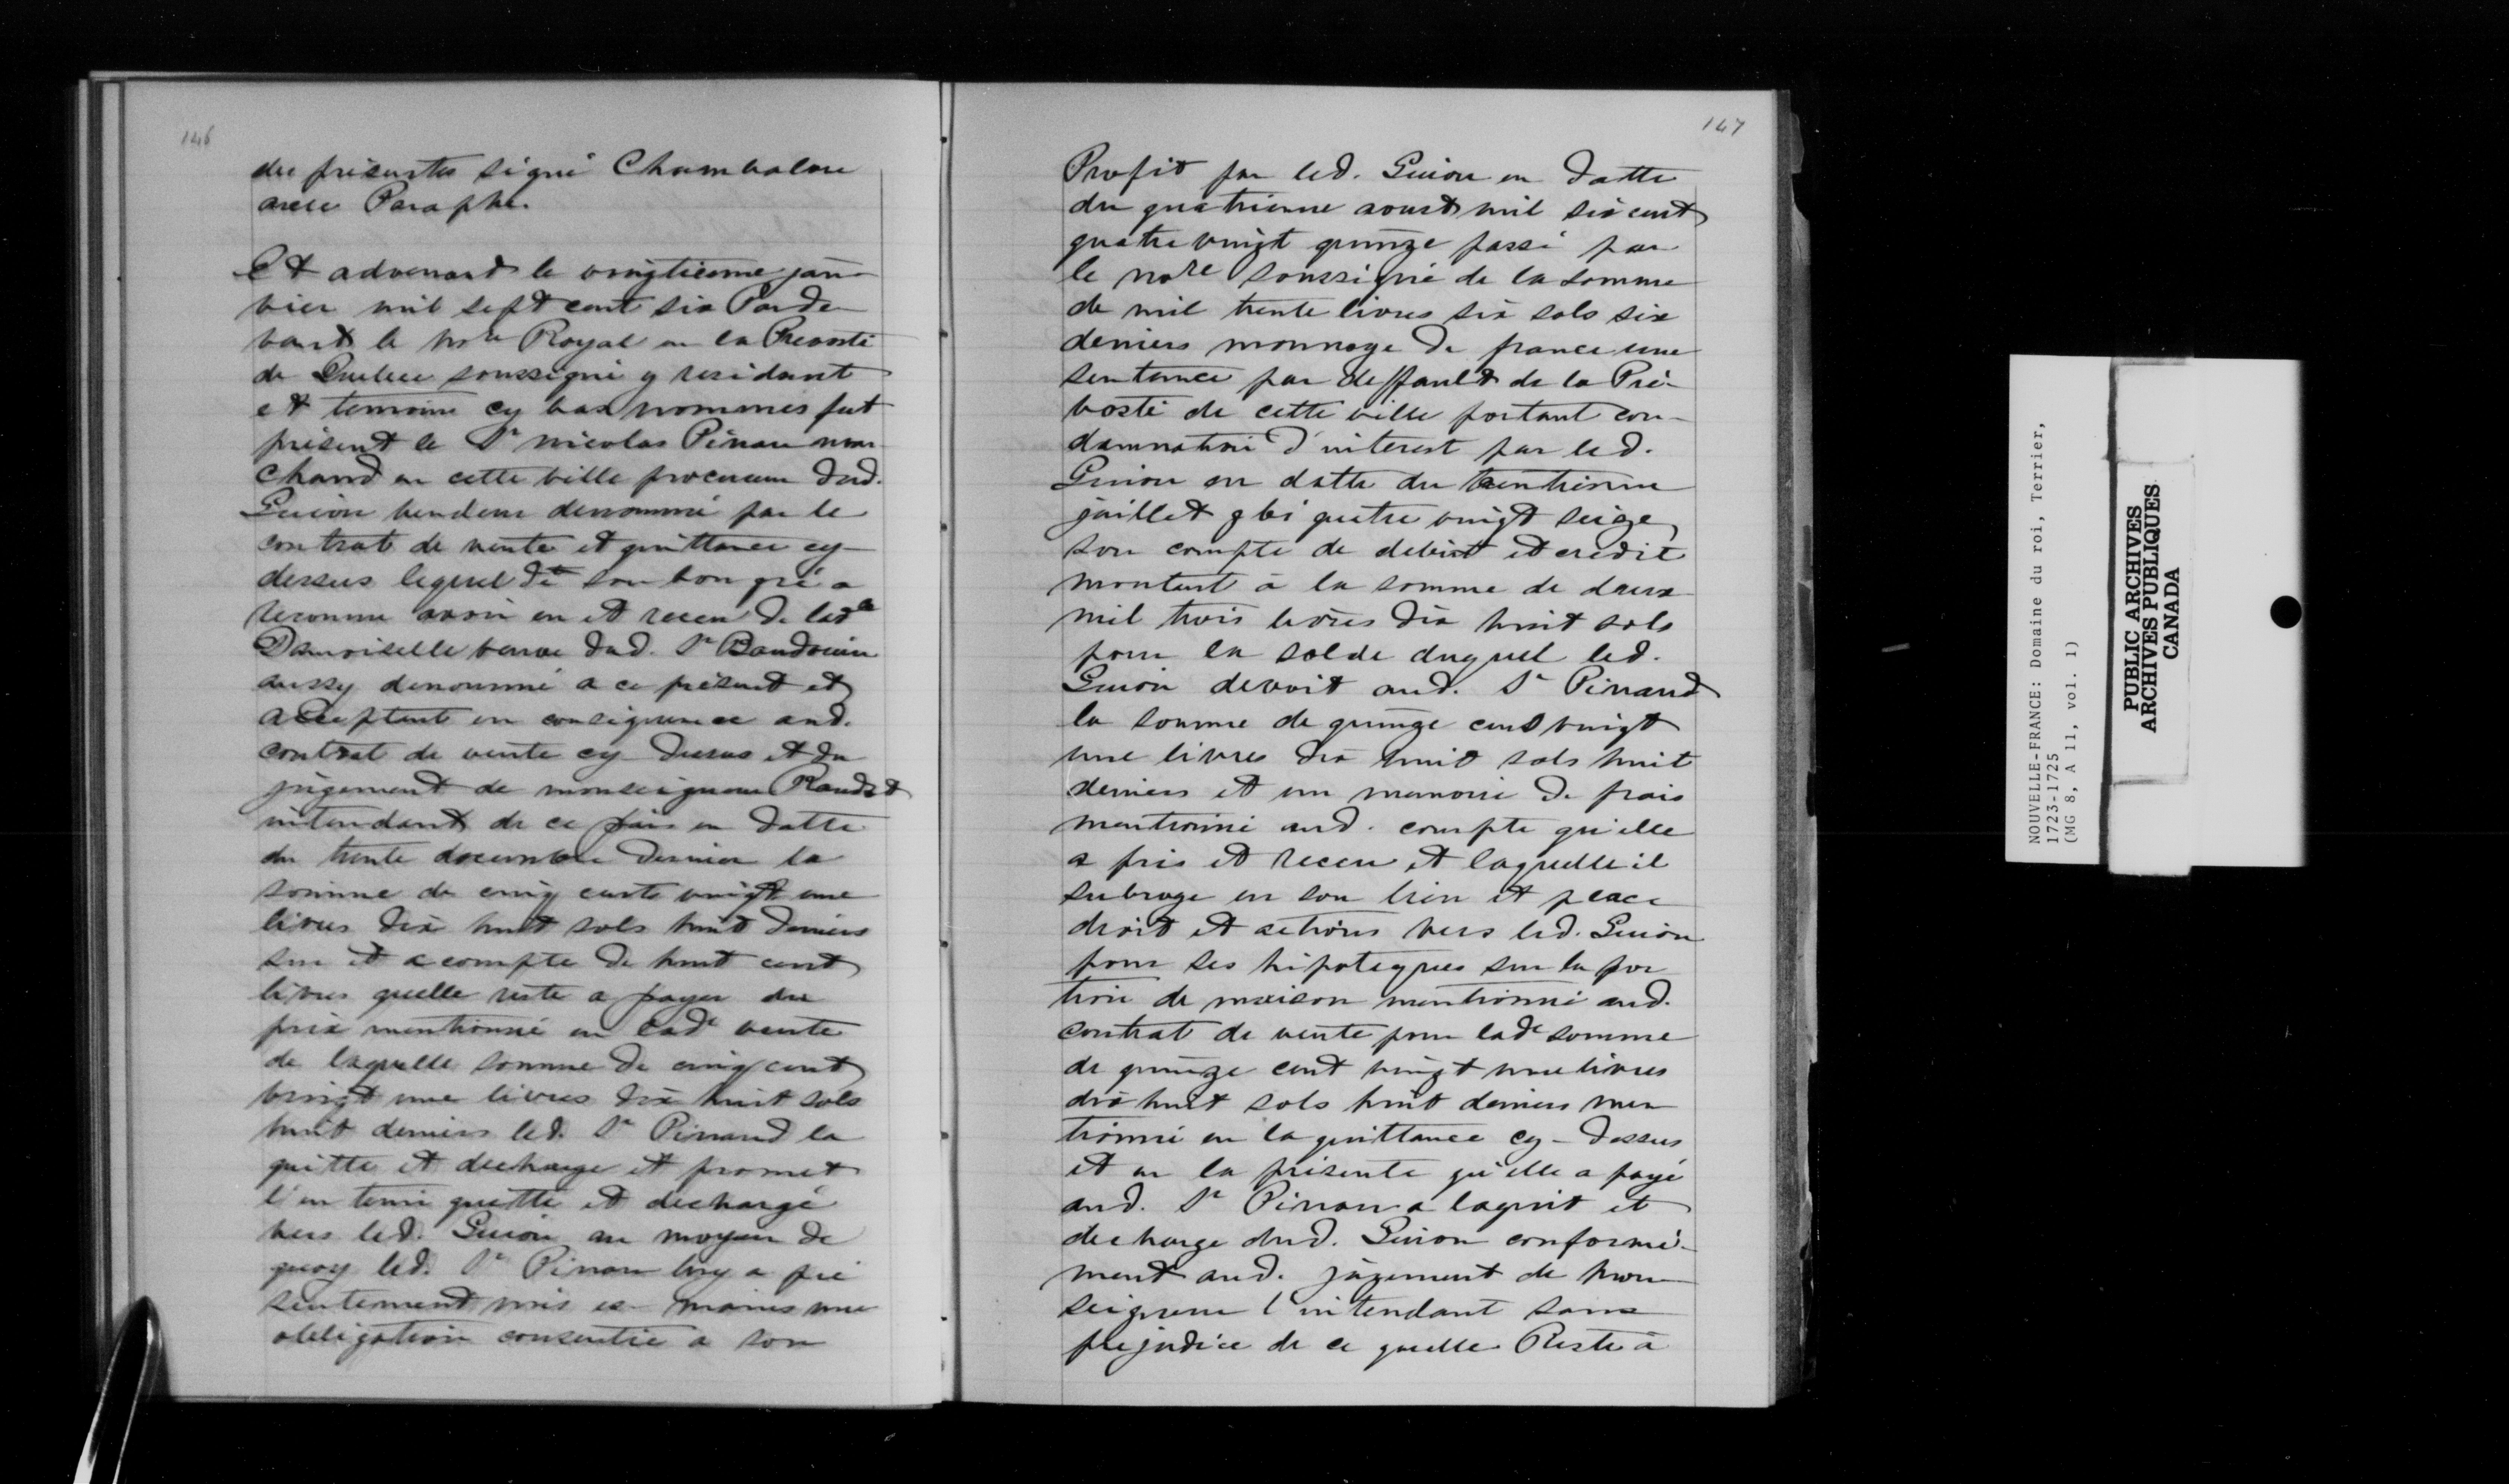 146
des présentes signé Chambalon
avec Paraphe.
Et advenant le vingtieme jan-
vier mil sept cent six Parde-
vant le no.re Royal en la Prevosté
de Quebec soussigné y residant
et temoins cy bas nommés fut
présent le Sr nicolas Pinau mar-
chand en cette ville procureur dud.
Guion vendeur denommé par le
contrat de vente et quittance cy-
dessus lequel de son bon gré a
reconnu avoir eu et receu de lade
Damoiselle veuve dud. Sr Baudouin
aussy denommé a ce présent et
acceptant en consequence aud.
contrat de vente cy dessus et du
jugement de monseigneur Raudot
intendant de ce païs en datte
du trente decembre dernier la
somme de cinq cents vingt une
livres dix huit sols huit deniers
sur et a compte de huit cent
livres quelle reste a payer du
prix mentionné en lade vente
de laquelle somme de cinq cent
vingt une livres dix huit sols
huit deniers led. Sr Pinaud la
quitte et decharge et promet
l'en tenir quitte et dechargé
vers led. Guion au moyen de
quoy led. Sr Pinau luy a pré
sentement mis es mains une
obligation consentie a son
147
Profit par led. Guion en datte
du quatrieme aoust mil six cent
quatre vingt quinze passé par
le nore soussigné de la somme
de mil trente livres six sols six
deniers monnoye de france une
sentence par deffault de la Pré-
vosté de cette ville portant con-
damnation d'interest par led.
Guion en datte du trentieme
juillet gbi quatre vingt seize
son compte de debit et credit
montant à la somme de deux
mil trois livres dix huit sols
pour la solde duquel led.
Guion devoit aud. Sr Pinaud
la somme de quinze cens vingt
une livres dix huit sols huit
deniers et un memoire de frais
mentionné aud. compte qu'elle
a pris et receu et laquelle il
subroge en son lieu et place
droit et actions vers led. Guion
pour ses hipoteques sur la por
tion de maison mentionné aud.
contrat de vente pour lade somme
de quinze cent vingt une livres
dix huit sols huit deniers men
tionné en la quittance cy-dessus
et en la présente qu'elle a payé
aud. Sr Pinau a laquit et
decharge dud. Guion conformé-
ment aud. jugement de mon
seigneur l'intendant sans
prejudice de ce quelle Reste à
NOUVELLE-FRANCE: Domaine du roi, Terrier,
1723-1725
(MG 8, A 11, vol. 1)
PUBLIC ARCHIVES
ARCHIVES PUBLIQUES
CANADA